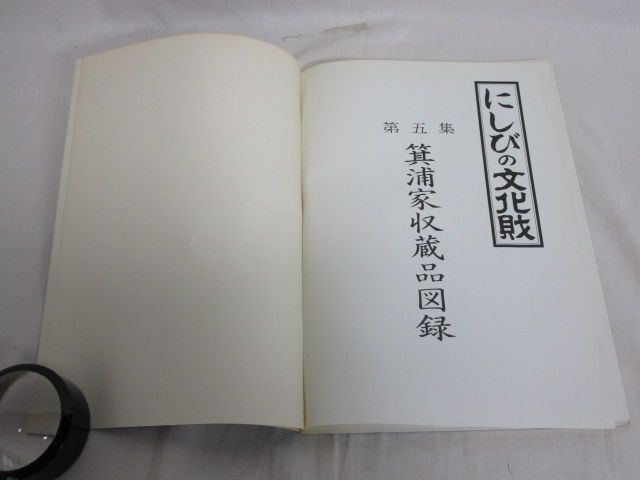 にしびの文化財
第五集
箕浦家収蔵品図録